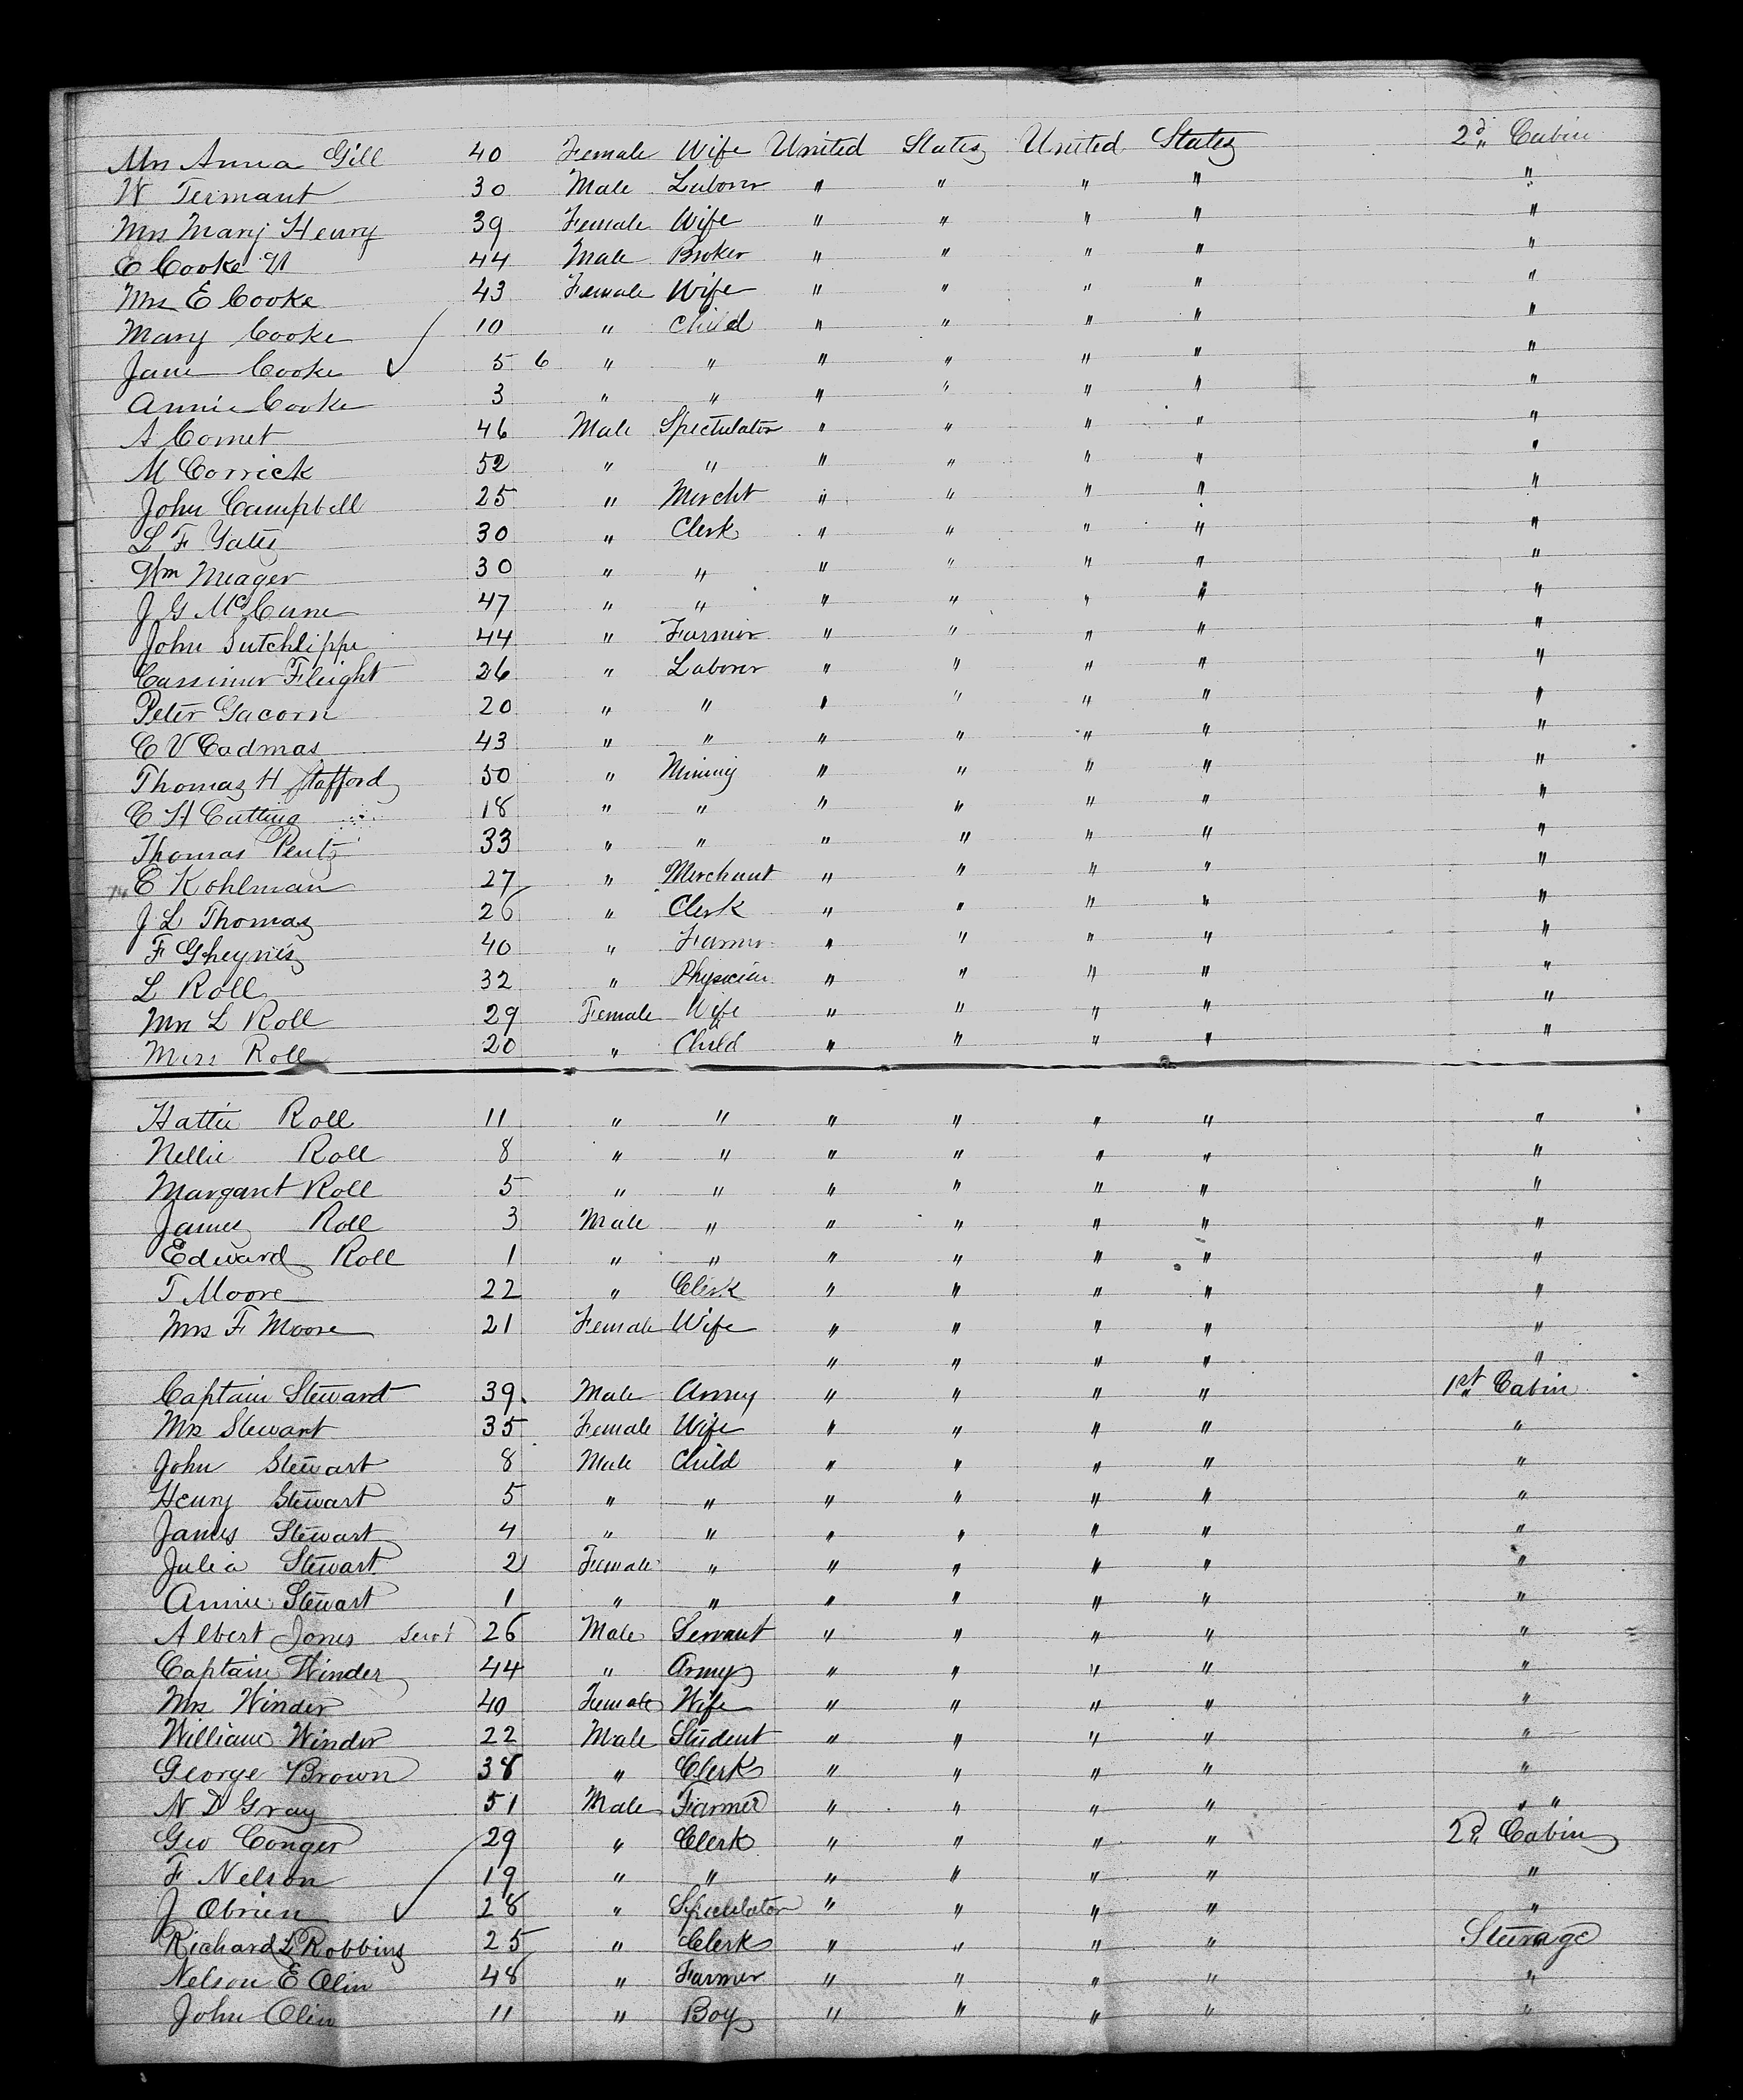 Mrs Anna Gill 40 Female Wife United States United States 2d Cabin
W Termant 30 Male Laborer " " " " "
Mrs Mary Henry 39 Female Wife " " " " "
E Cooke 44 Male Broker " " " " "
Mrs E Cooke 43 Female Wife " " " " "
Mary Cooke 10 " Child " " " " "
Jane Cooke 5 6 " " " " " " "
Annie Cooke 3 " " " " " " "
A Comet 46 Male Spectulator " " " " "
M Corrick 52 " " " " " " "
John Campbell 25 " Mercht " " " " "
L F Yates 30 " Clerk " " " " "
Wm Meager 30 " " " " " " "
J G McCune 47 " " " " " " "
John Sutchlippe 44 " Farmer " " " " "
Cassimer Fleight 26 " Laborer " " " " "
Peter Gacorn 20 " " " " " " "
C V Cadmas 43 " " " " " " "
Thomas H Stafford 50 " Mining " " " " "
C H Cutting 18 " " " " " " "
Thomas Pentz 33 " " " " " " "
E Kohlman 27 " Merchant " " " " "
J L Thomas 26 " Clerk " " " " "
F Gheynes 40 " Farmer " " " " "
L Roll 32 " Physician " " " " "
Mrs L Roll 29 Female Wife " " " " "
Miss Roll 20 " Child " " " " "
Hattie Roll 11 " " " " " " "
Nellie Roll 8 " " " " " " "
Margaret Roll 5 " " " " " " "
James Roll 3 Male " " " " " "
Edward Roll 1 " " " " " " "
T Moore 22 " Clerk " " " " "
Mrs F Moore 21 Female Wife " " " " "
" " " " "
Captain Stewart 39 Male Army " " " " 1st Cabin
Mrs Stewart 35 Female Wife " " " " "
John Stewart 8 Male Child " " " " "
Henry Stewart 5 " " " " " " "
James Stewart 4 " " " " " " "
Julia Stewart 2 Female " " " " " "
Annie Stewart 1 " " " " " " "
Albert Jones Serv't 26 Male Servant " " " " "
Captain Winder 44 " Army " " " " "
Mrs Winder 40 Female Wife " " " " "
William Winder 22 Male Student " " " " "
George Brown 38 " Clerk " " " " "
N D Gray 51 Male Farmer " " " " " "
Geo Conger 29 " Clerk " " " " 2d Cabin
F Nelson 19 " " " " " " "
J Obrien 28 " Speculator " " " " "
Richard L Robbins 25 " Clerk " " " " Sturage
Nelson E Olin 48 " Farmer " " " " "
John Olin 11 " Boy " " " " "